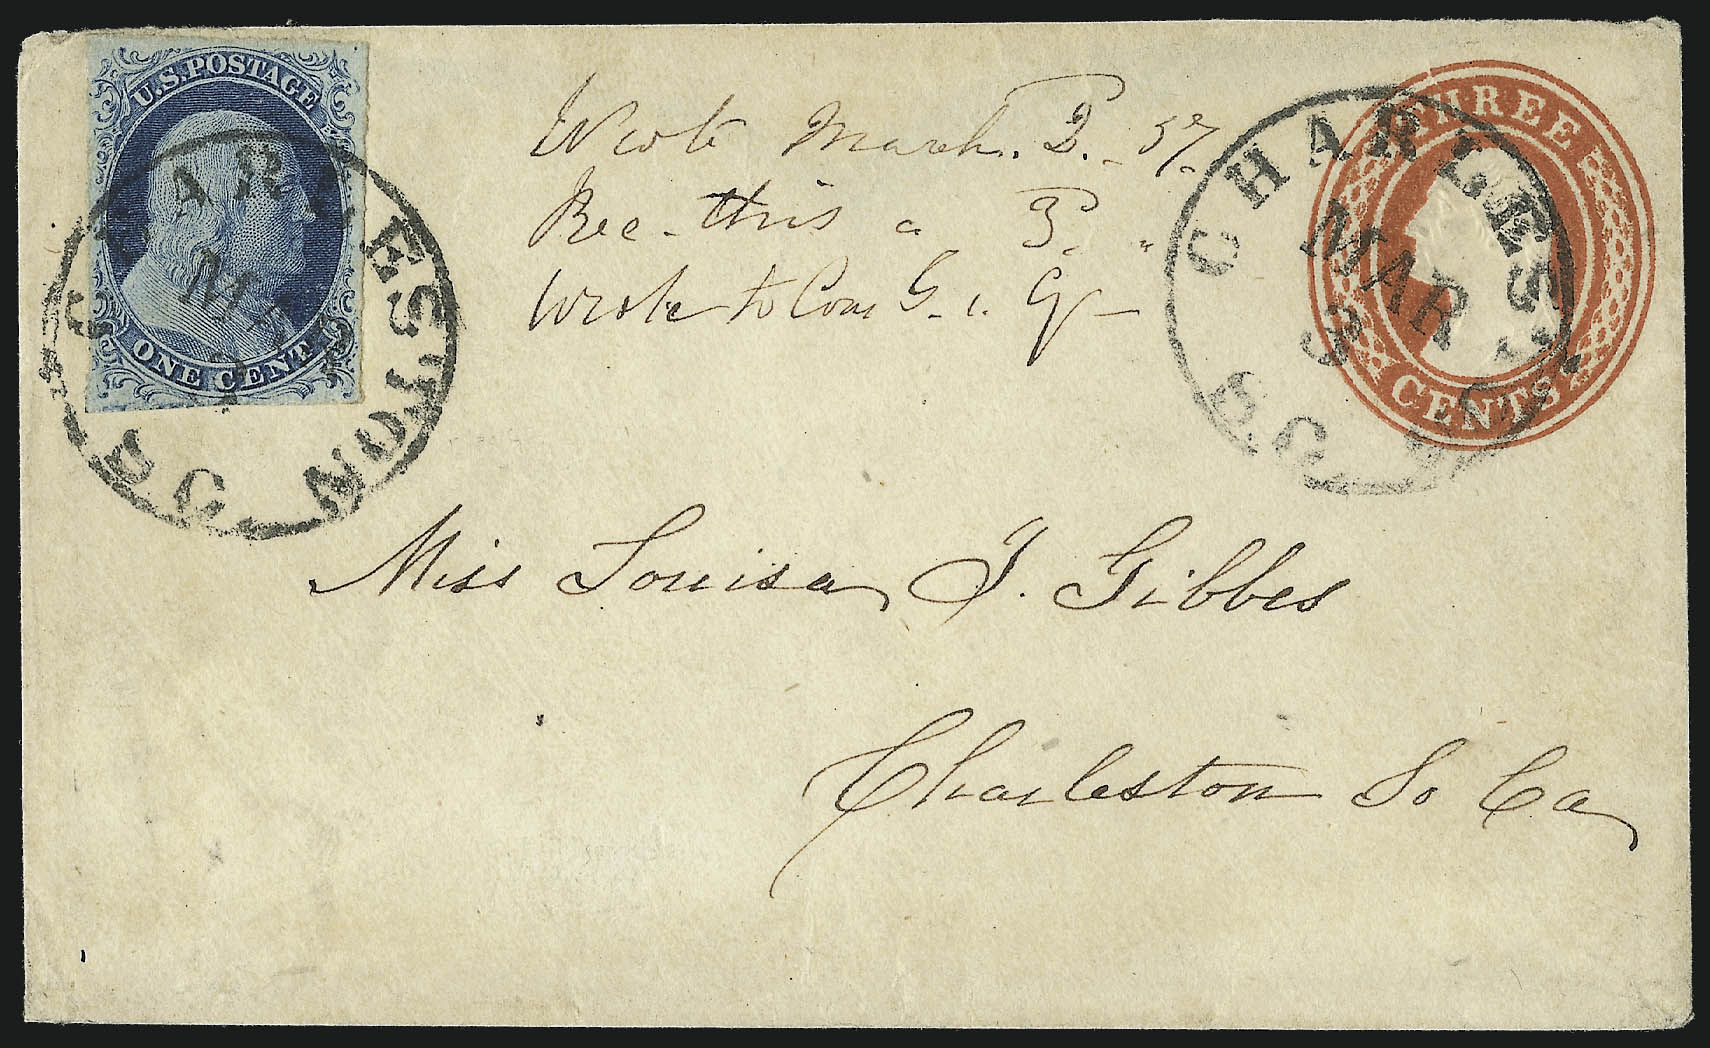 U.S. POSTAGE
ONE CENT
CHARLESTON
S.C.
March. 3. 57.
Rec. this 3. "
Wrote to
THREE
CENTS
CHARLESTON
MAR
3
S.C.
Miss Louisa J. Gibbes
Charleston So Ca